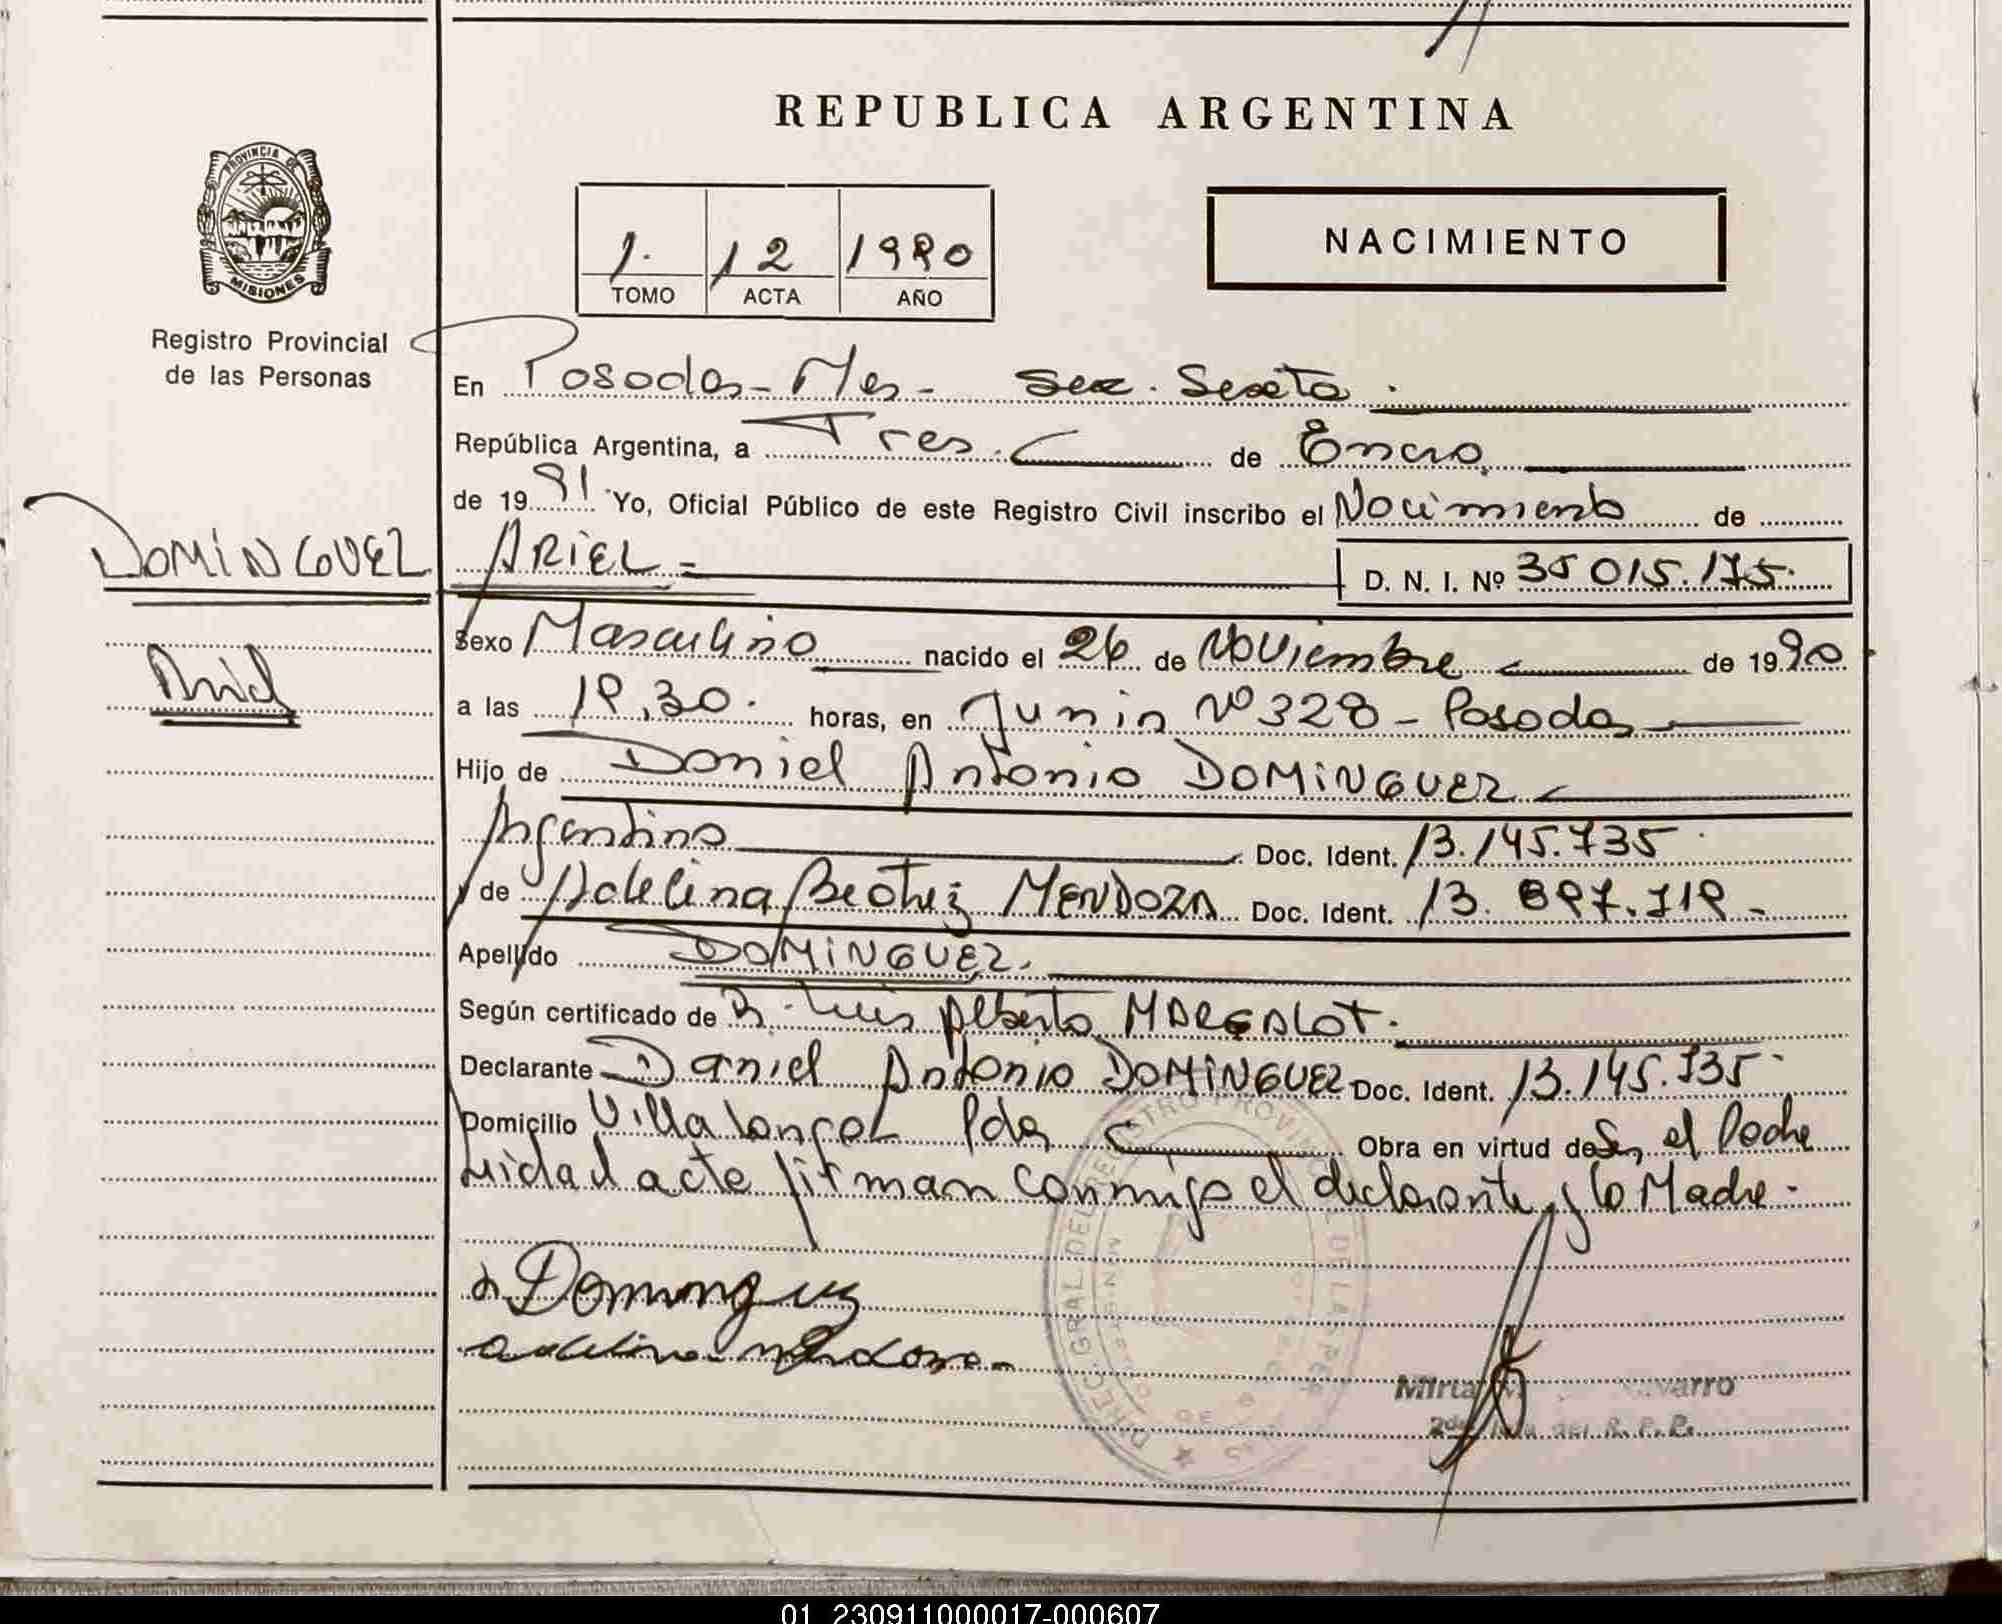 REPUBLICA ARGENTINA
PROVINCIA DE
MISIONES
Registro Provincial
de las Personas
1. 12 1990
TOMO ACTA AÑO
NACIMIENTO
En Posadas - Mes - Sec. Sexta.
República Argentina, a Tres. de Enero
de 1991 Yo, Oficial Público de este Registro Civil inscribo el Nacimiento de
DOMINGUEZ
ARIEL = D. N. I. Nº 35 015.175.
Ariel
Sexo Masculino nacido el 26 de Noviembre de 1990
a las 19,30. horas, en Junin Nº 328 - Posadas
Hijo de Daniel Antonio DOMINGUEZ
Argentino Doc. Ident. 13.145.735
y de Adelina Beatriz MENDOZA Doc. Ident. 13. 897.719 -
Apellido DOMINGUEZ.
Según certificado de Dr. Luis Alberto MARGALOT.
Declarante Daniel Antonio DOMINGUEZ Doc. Ident. 13.145.735
Domicilio Villalonga Pdas Obra en virtud de Ser el Padre
Leida el acta firman conmigo el declarante y la Madre -
Dominguez
adelina mendoza
Mirta Navarro
R. P. P.
01_230911000017-000607